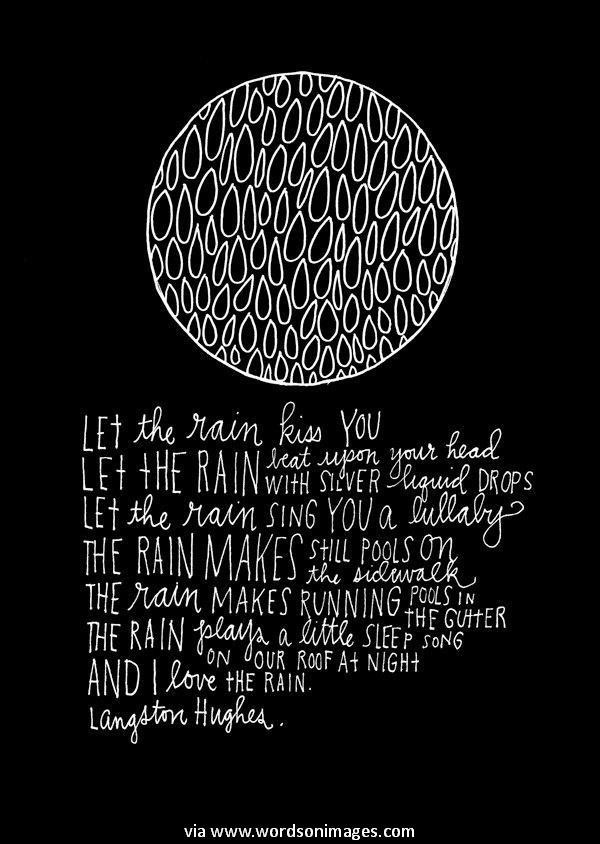 LET the rain kiss YOU
LET tHE RAIN beat upon your head
WITH SILVER liquid DROPS
LET the rain SING YOU a lullaby
THE RAIN MAKES StILL POOLS ON
the sidewalk
THE rain MAKES RUNNING POOLS IN
tHE GUttER
THE RAIN plays a little SLEEP SONG
ON OUR ROOF At NIGHt
AND I love tHE RAIN.
Langston Hughes.
via www.wordsonimages.com